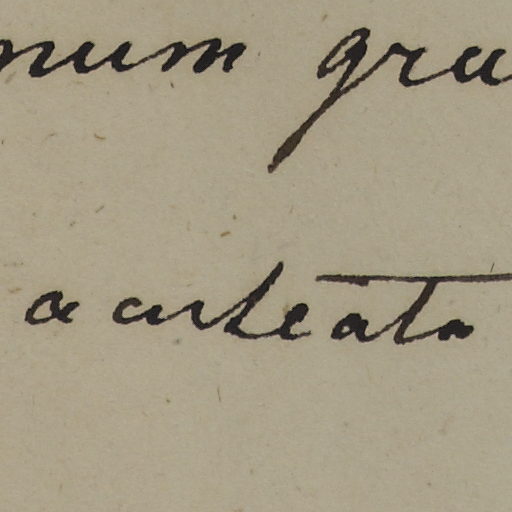 num gra
aculeata